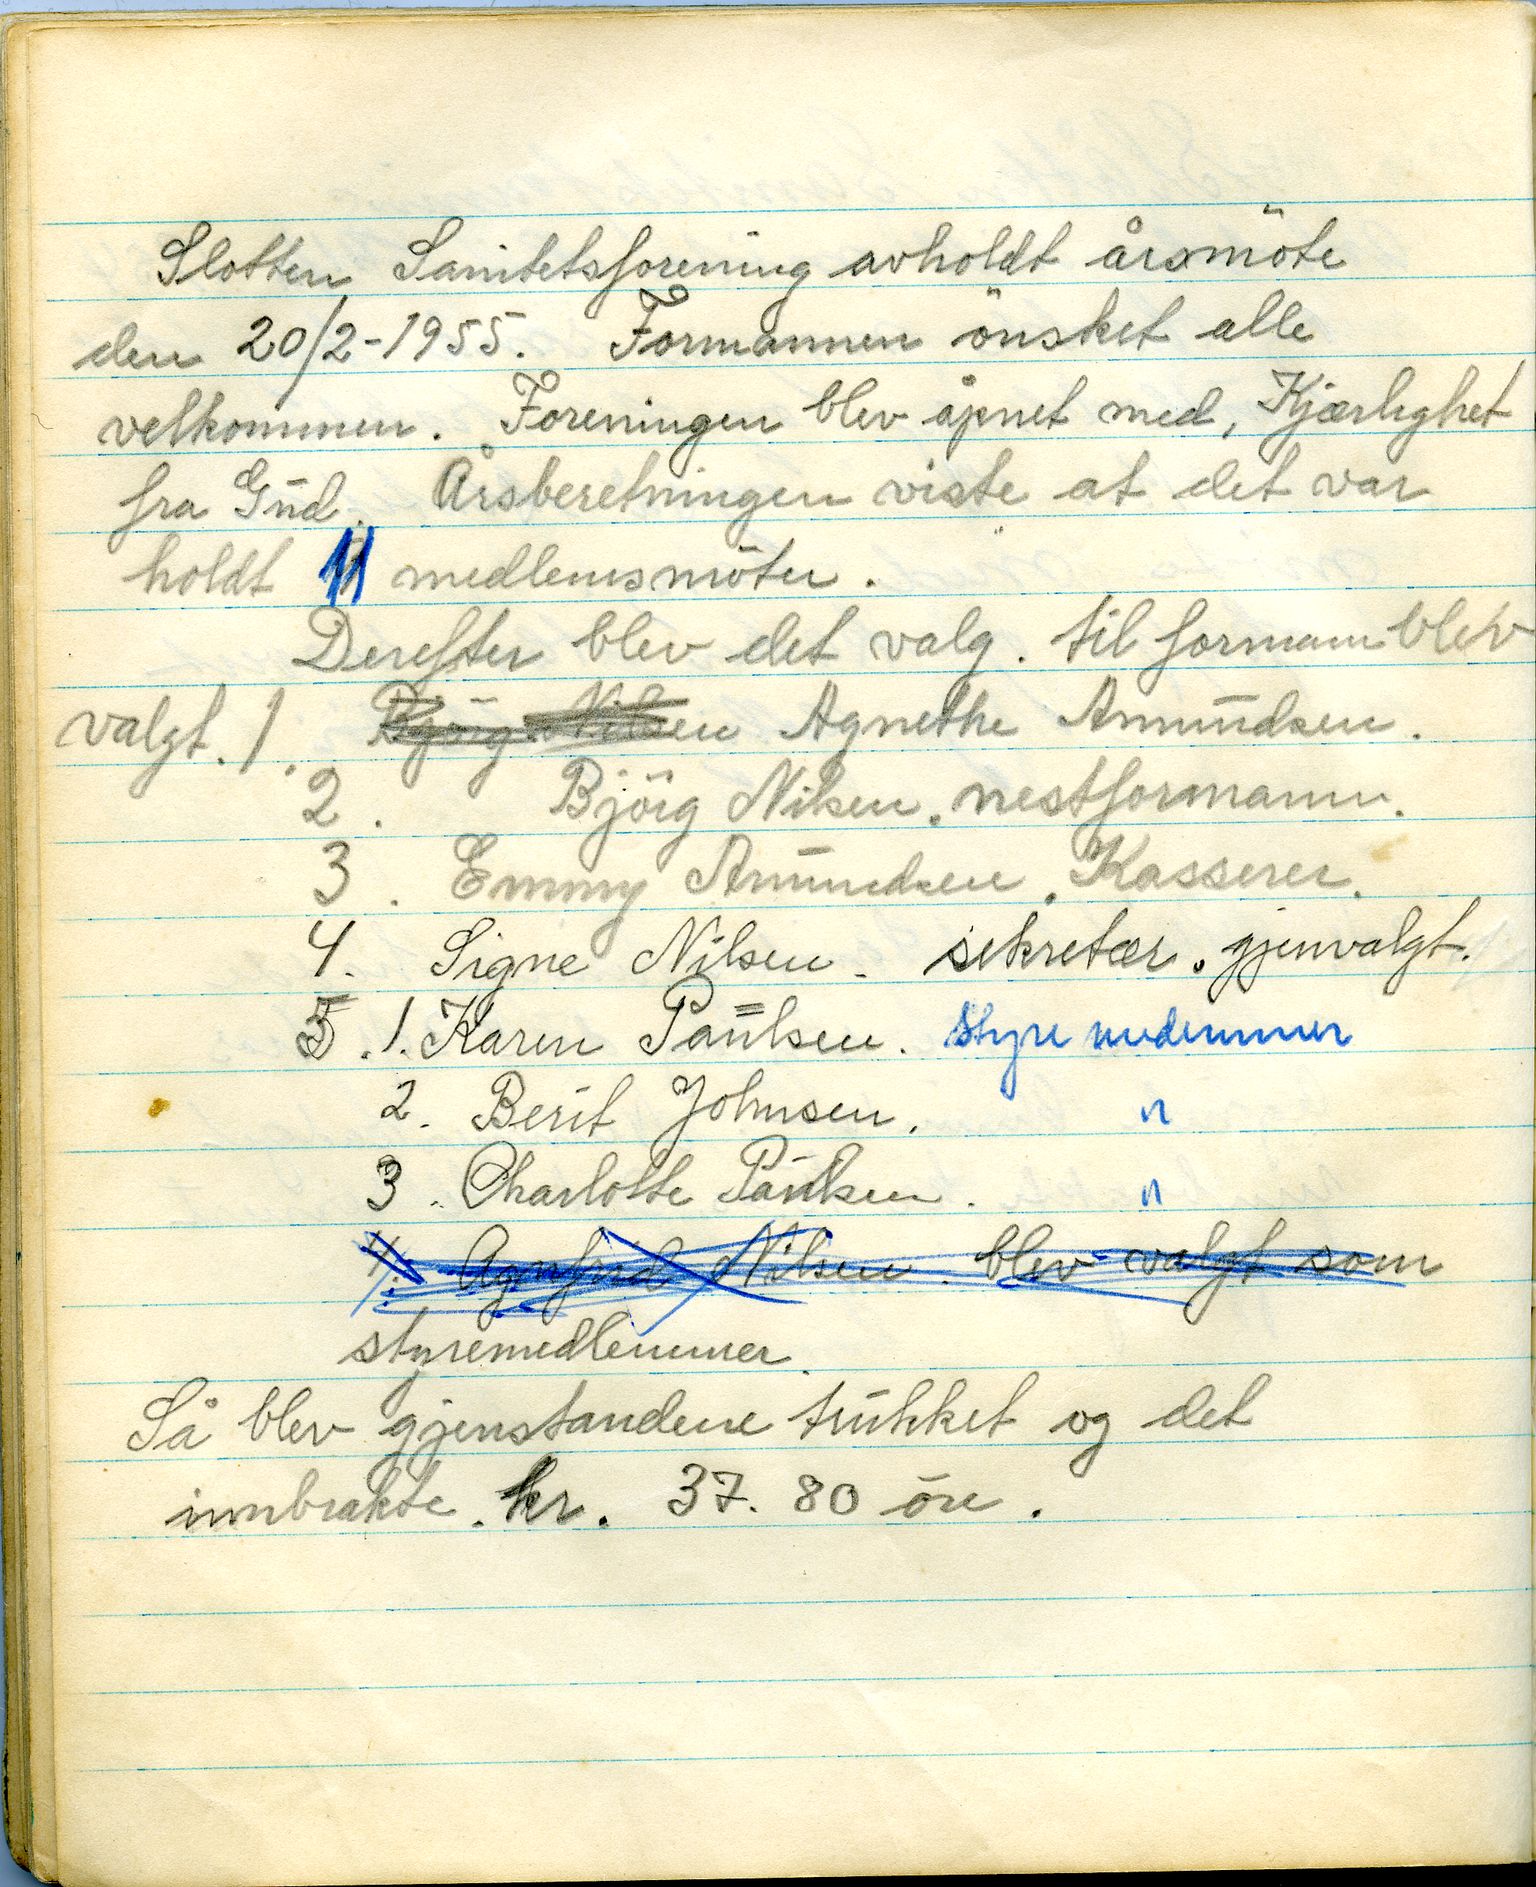 Slotten Sanitetsforening avholdt årsmöte
den 20/2-1955. Formannen önsket alle
velkommen. Foreningen blev åpnet med, Kjærlighet
fra Gud. Årsberetningen viste at det var
holdt 11 medlemsmöter.
Derefter blev det valg. til formann blev
valgt. 1. Björg Nilsen Agnethe Amundsen.
2. Björg Nilsen. nestformann.
3. Emmy Amundsen. Kasserer.
4. Signe Nilsen. sekretær. gjenvalgt.
5. 1. Karen Paulsen. Styre medemmer
2. Berit Johnsen. "
3. Charlotte Paulsen. "
4. Nilsen. blev valgt som
styremedlemmer.
Så blev gjenstandene trukket og det
innbrakte. kr. 37. 80 öre.